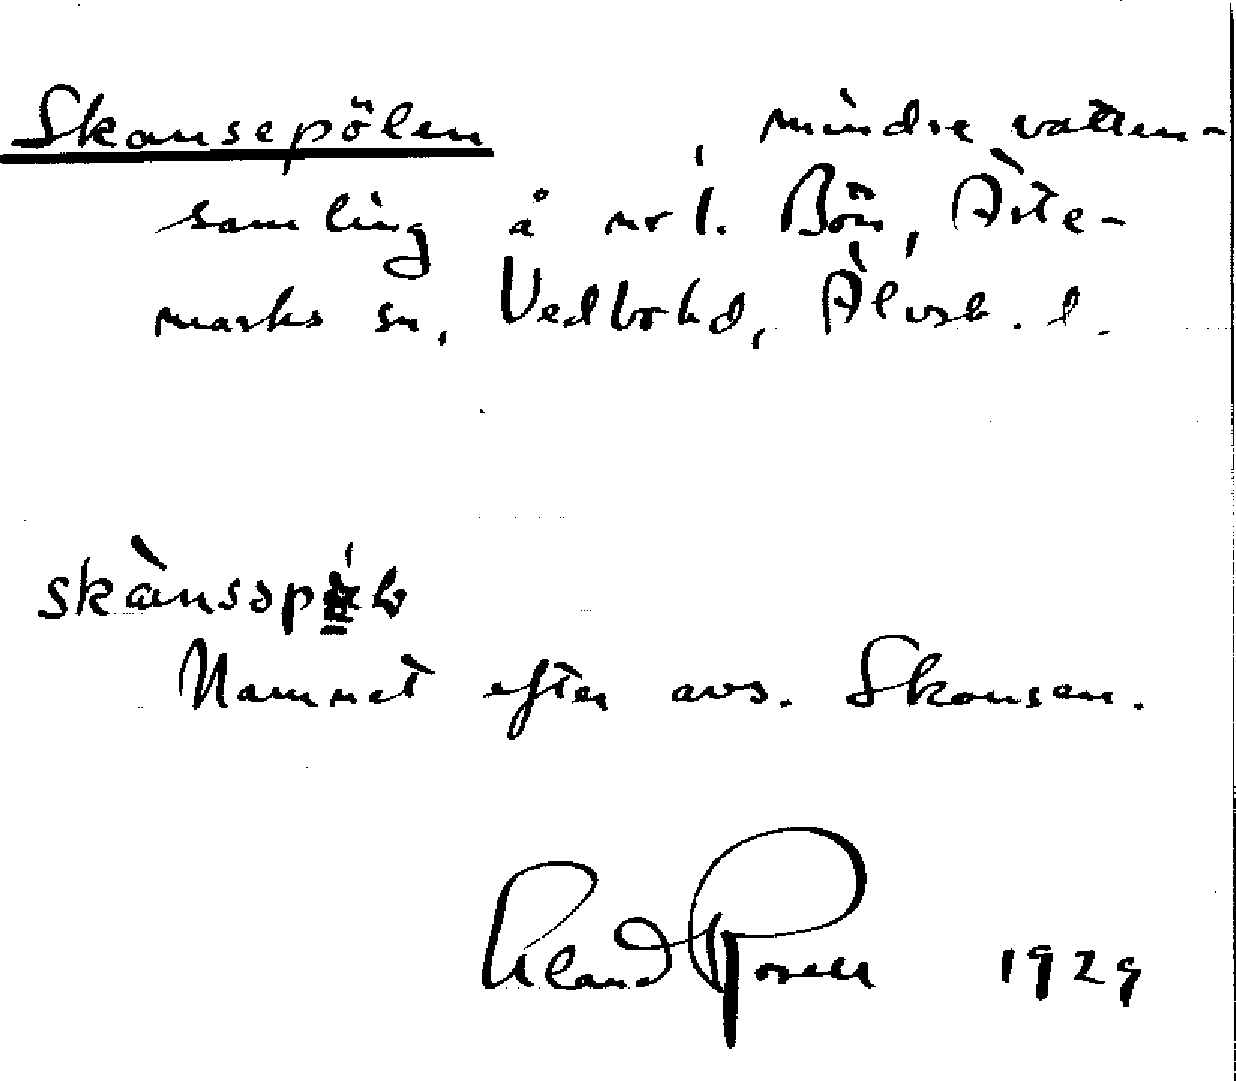 Skansepölen, mindre vatten-
samling å nr 1. Bön, Ärte-
marks sn, Vedbo hd, Älvsb. l.
Namnet efter avs. Skansen.
Rosell 1929